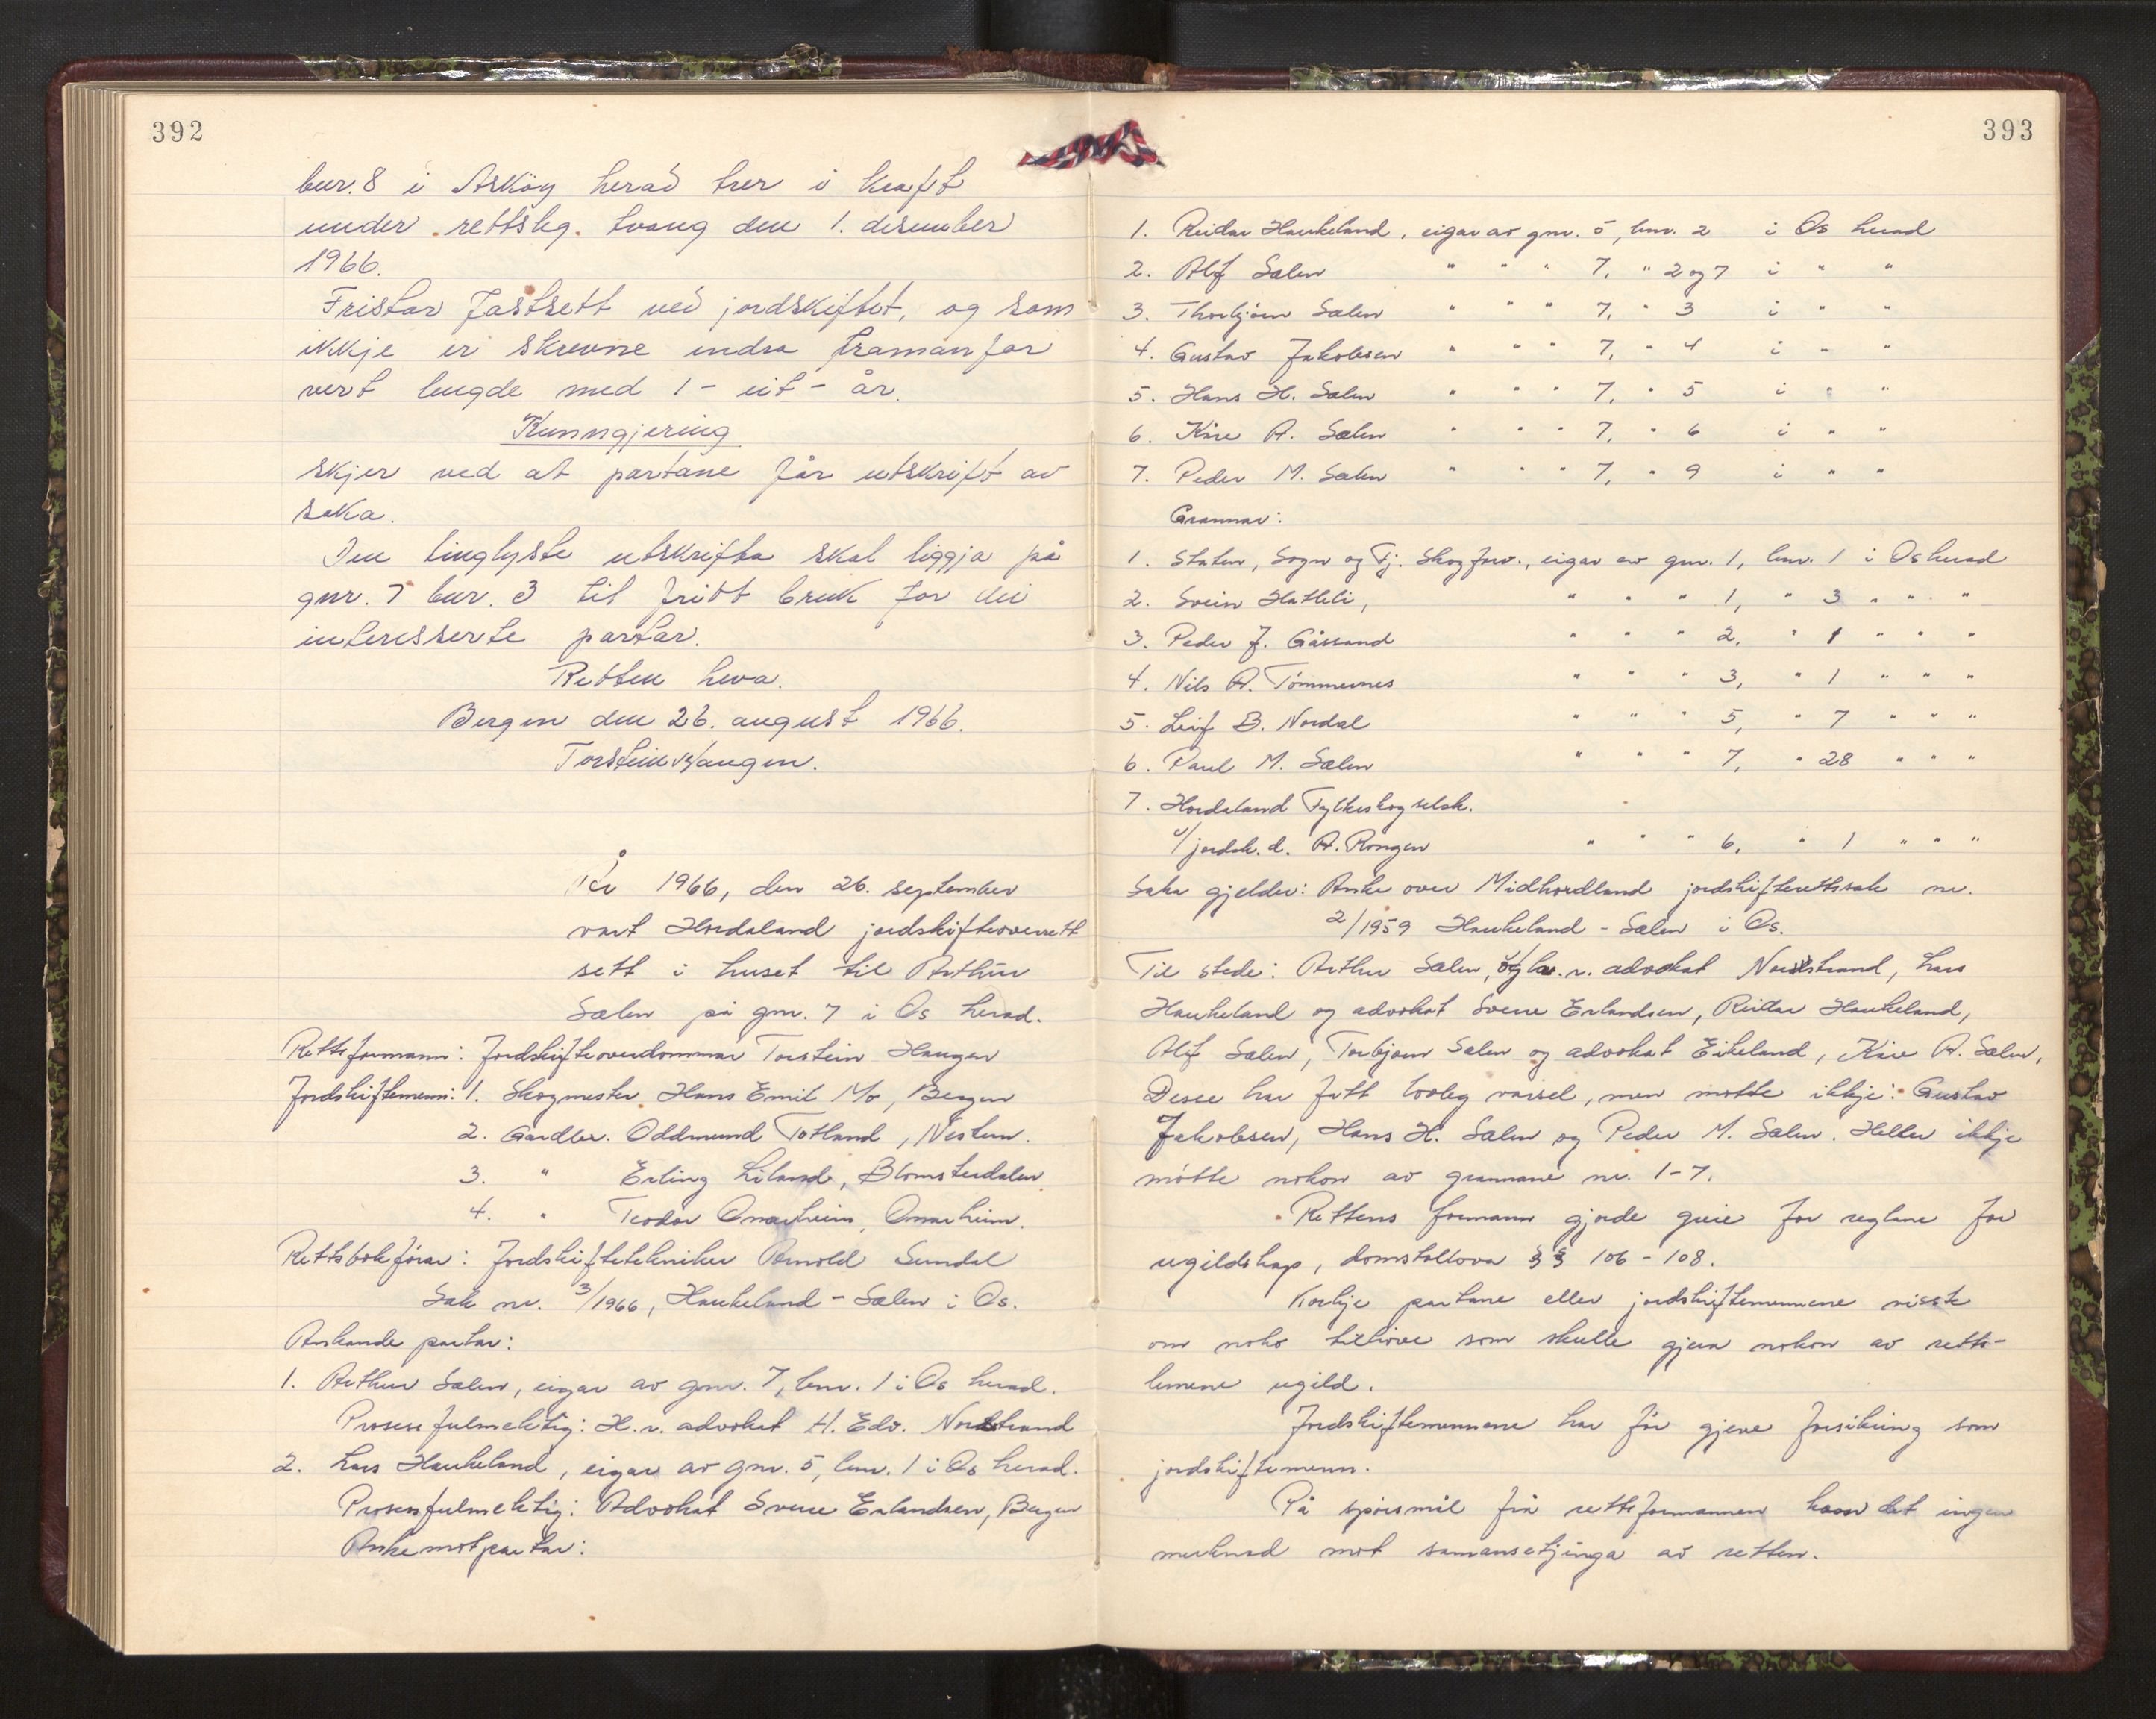 392
bnr. 8 i Askøy herad trer i kraft
under rettsleg tvang den 1. desember
1966.
Fristar fastsett ved jordskiftet, og som
ikkje er skrevne endra framanfor
vert lengde med 1 - eit - år.
Kunngjering
skjer ved at partane får utskrift av
saka.
Den tinglyste utskrifta skal liggja på
gnr. 7 bnr. 3 til fritt bruk for dei
interesserte partar.
Retten heva.
Bergen den 26. august 1966.
Torstein Haugen.
År 1966, den 26. september
vart Hordaland jordskifteoverrett
sett i huset til Arthur
Sælen på gnr. 7 i Os herad.
Rettsformann: Jordskifteoverdommar Torstein Haugen
Jordskiftemenn: 1. Skogmester Hans Emil Mo, Bergen
2. Gardbr. Oddmund Totland, Nestun.
3. " Erling Liland, Blomsterdalen
4. " Teodor Omarheim, Omarheim.
Rettsbokförar: Jordskiftetekniker Arnold Sundal
Sak nr. 3/1966, Haukeland - Sælen i Os.
Ankande partar:
1. Arthur Sælen, eigar av gnr. 7, bnr. 1 i Os herad.
Prosessfulmektig: H.r. advokat H. Edv. Nordstrand
2. Lars Haukeland, eigar av gnr. 5, bnr. 1 i Os herad.
Prosessfulmektig: Advokat Sverre Erlandsen, Bergen
Ankemotpartar:
393
1. Reidar Haukeland, eigar av gnr. 5, bnr. 2 i Os herad
2. Alf Sælen " " " 7, " 2 og 7 i " "
3. Thorbjørn Sælen " " " 7, " 3 i " "
4. Gustav Jakobsen " " " 7, " 4 i " "
5. Hans H. Sælen " " " 7, " 5 i " "
6. Kåre A. Sælen " " " 7, " 6 i " "
7. Peder M. Sælen " " " 7, " 9 i " "
Grannar:
1. Staten, Sogn og Fj. Skogforv., eigar av gnr. 1, bnr. 1 i Os herad
2. Svein Hatleli, " " " 1, " 3 " " "
3. Peder J. Gåssand " " " 2, " 1 " " "
4. Nils A. Tømmernes " " " 3, " 1 " " "
5. Leif B. Nordal " " " 5, " 7 " " "
6. Paul M. Sælen " " " 7, " 28 " " "
7. Hordaland Fylkeskogselsk.
v/jordsk.d. A. Rongen " " " 6, " 1 " " "
Saka gjelder: Anke over Midhordland jordskifterettssak nr.
2/1959 Haukeland - Sælen i Os.
Til stede: Arthur Sælen, og h.r. advokat Nordstrand, Lars
Haukeland og advokat Sverre Erlandsen, Reidar Haukeland,
Alf Sælen, Torbjørn Sælen og advokat Eikeland, Kåre A. Sælen,
Desse har fått lovleg varsel, men møtte ikkje: Gustav
Jakobsen, Hans H. Sælen og Peder M. Sælen. Heller ikkje
møtte nokon av grannane nr. 1-7.
Rettens formann gjorde greie for reglane for
ugildskap, domstollova §§ 106 - 108.
Korkje partane eller jordskiftemennene visste
om noko tilhøve som skulle gjera nokon av retts-
lemene ugild.
Jordskiftemennene har før gjeve forsikring som
jordskiftemenn.
På spørsmål frå rettsformannen kom det ingen
merknad mot samansetjinga av retten.